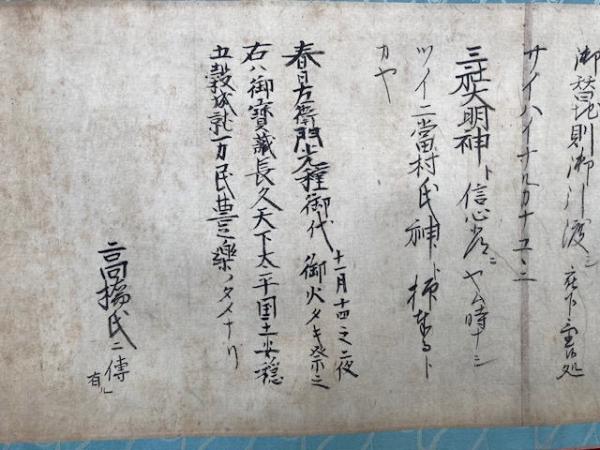 御替地則御引渡シ
サイハイナルカナココニ
三社大明神ト信心常ニヤム時ナシ
ツイニ當村氏神ト拝奉ルト
カヤ
春日左衛門光種御代十一月十四之夜御火タキ祭之
右ハ御寶蔵長久天下太平国土安穏
五穀成就万民豊楽ノタメナリ
高橋氏ニ傳
有ル